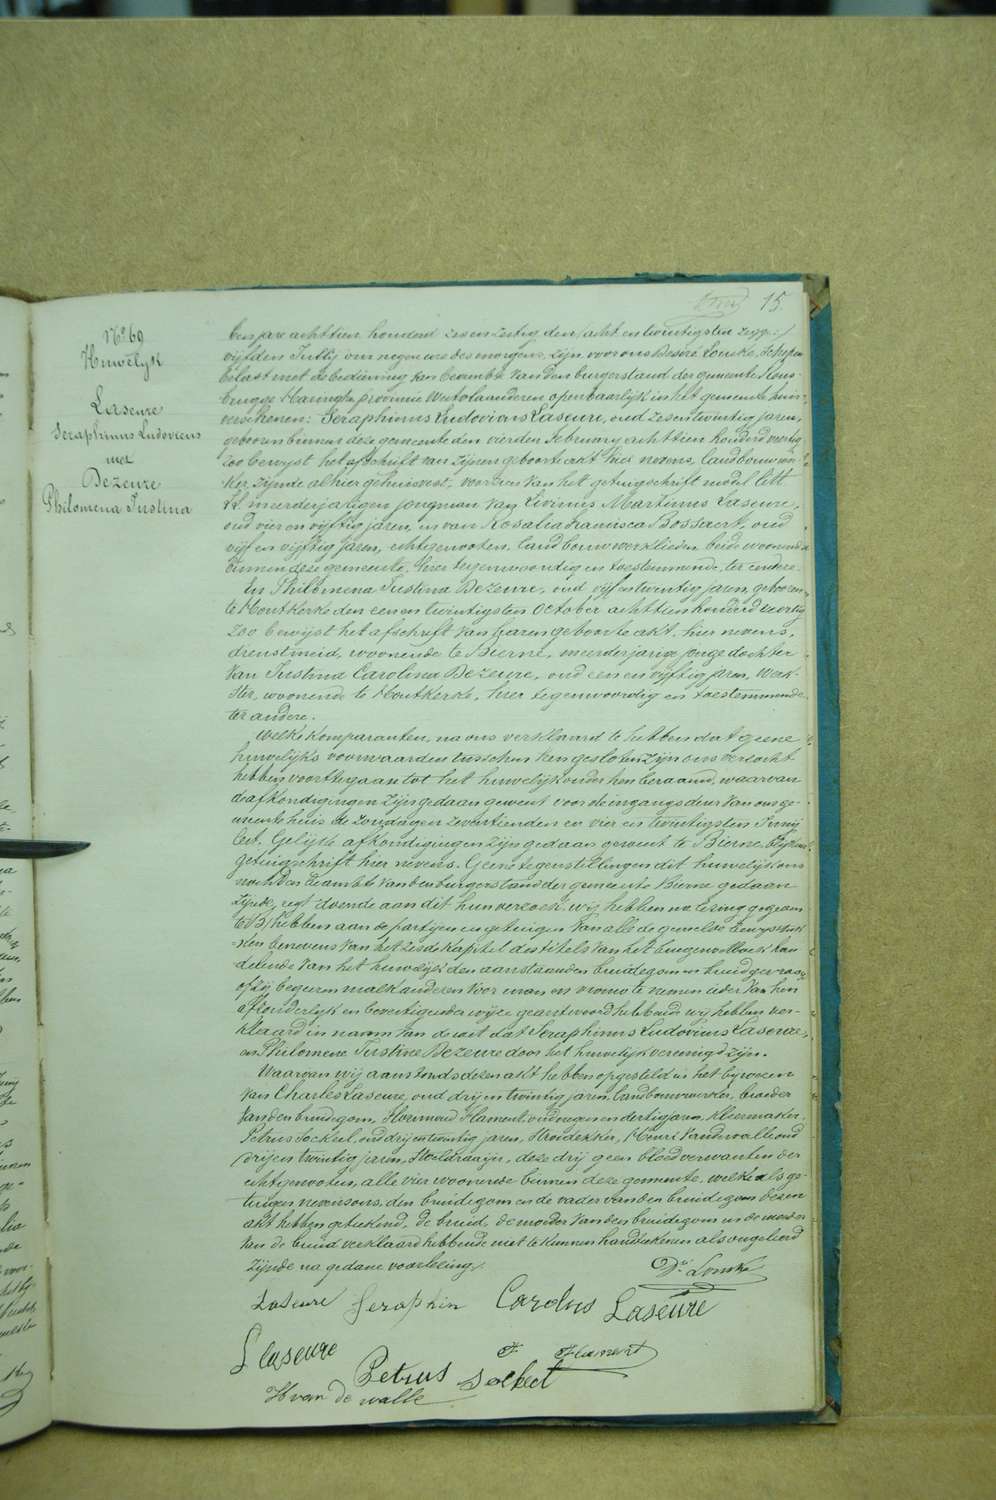 15
N° 69
Huwelyk
Laseure
Seraphinus Ludovicus
met
Dezeure
Philomena Justina
ben jare achttien honderd zes en zestig, den (acht en twintigsten zegge:)
vijfden Julij ten negen ure des morgens, zijn voor ons Desiré Louske, Schepen
belast met de bediening van beambte van den burgerstand der gemeente Rous-
brugge Haringhe provincie Westvlaanderen openbaarlijk in het gemeente huis
verschenen: Seraphinus Ludovicus Laseure, oud zes en twintig jaren,
geboren binnen deze gemeente den vierden February achttien honderd veertig
zoo bewijst het afschrift van zijnen geboorte akt hier nevens, landbouwwer-
ker, zijnde alhier gehuisvest, voorzien van het getuigschrift model lett
meerderjarigen jongman van Livinus Martinus Laseure,
oud vier en vijftig jaren, en van Rosalia Francisca Bossaert, oud
vijf en vijftig jaren, echtgenooten, landbouwwerklieden beide woonende
binnen deze gemeente, hier tegenwoordig en toestemmende, ter eendere.
En Philomena Justina Dezeure, oud vijf en twintig jaren, geboren
te Houtkerke den eenen twintigsten October achttien honderd veertig
zoo bewijst het afschrift van haren geboorte akt, hier nevens,
dienstmeid, woonende te Bierne, meerderjarige jonge dochter
van Justina Carolina Dezeure, oud een en vijftig jaren, werk-
ster, woonende te Houtkerke, hier tegenwoordig en toestemmende
ter andere.
Welke komparanten, na ons verklaard te hebben dat geene
huwelijks voorwaarden tusschen hen gesloten zijn ons verzocht
hebben voort te gaan tot het huwelijk onder hen beraamd, waarvan
de afkondigingen zijn gedaan geweest voor de ingangsdeur van ons ge-
meente huis de zondagen zeventienden en vier en twintigsten Junij
lest. Gelijke afkondigingen zijn gedaan geweest te Bierne, blijkens
getuigschrift hier nevens. Geene tegenstellingen dit huwelijk ons
noch den beambte van den burgerstand der gemeente Bierne gedaan
zijnde, regt doende aan dit hun verzoek, wij hebben na lezing gegeven
te hebben aan de partijen en getuigen van alle de gemelde bewijsstuk-
ken benevens van het zesde kapitel des titels van het burgerwetboek han
delende van het huwelijk den aanstaanden bruidegom en bruid gevraagd
of zij begeeren malkanderen voor man en vrouw te nemen ieder van hen
afzonderlijk en bevestigender wijze geantwoord hebbende wij hebben ver-
klaard in naam van de wet dat Seraphinus Ludovicus Laseure,
en Philomene Justine Dezeure door het huwelijk vereenigd zijn.
Waarvan wij aanstonds dezen akt hebben opgesteld in het bijwezen
van Charles Laseure, oud drij en twintig jaren, landbouwwerker, broeder
van den bruidegom, Flament oud negen en dertig jaren, kleermaker,
Petrus Sockeel, oud drij en twintig jaren, Stroidekker, Henri Vandewalle oud
drij en twintig jaren, Stoeldraaijer, deze drij geen bloedverwanten der
echtgenooten, alle vier woonende binnen deze gemeente, welke als ge-
tuigen nevens ons, den bruidegom en de vader van den bruidegom dezen
akt hebben geteekend, de bruid, de moeder van den bruidegom en de moeder
van de bruid verklaard hebbende niet te kunnen handteekenen als ongeleerd
zijnde na gedane voorlezing.
Dré Louske
Laseure Seraphin Carolus Laseure
L laseure F Flament
Petrus Sockeel
H van de walle